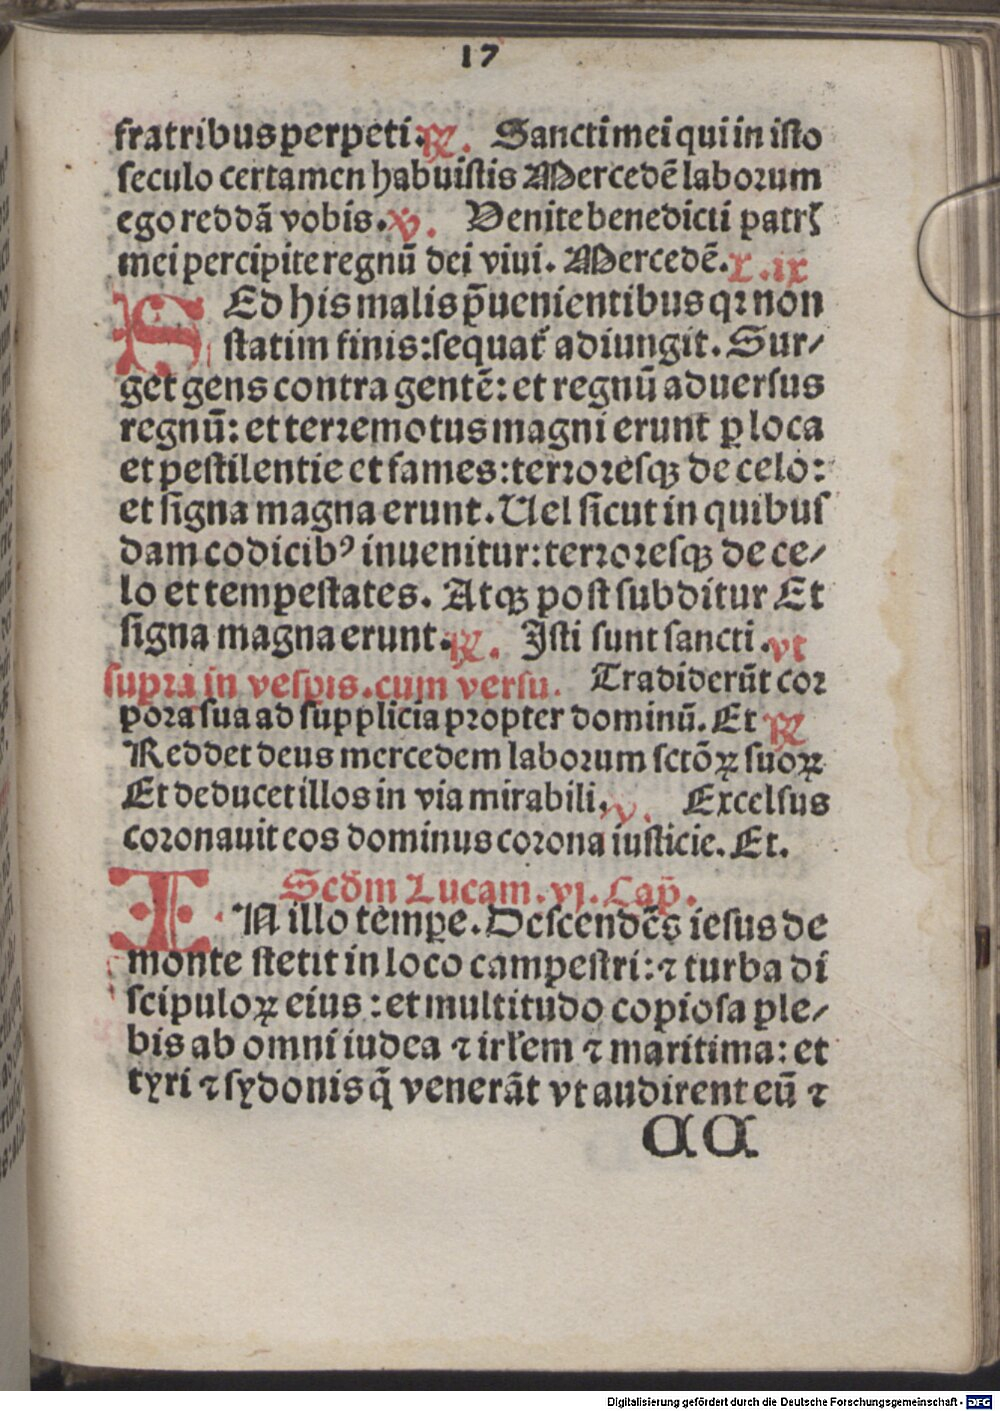 17
fratribus perpeti. ℟. Sancti mei qui in isto
seculo certamen habuistis Mercedē laborum
ego reddā vobis. ℣. Venite benedicti patrꝭ
mei percipite regnū dei viui. Mercedē. L. ix
SEd his malis p̄uenientibus qꝛ non
statim finis: sequat̄ adiungit. Sur⸗
get gens contra gentē: et regnū aduersus
regnū: et terremotus magni erunt ꝑ loca
et pestilentie et fames: terroresqꝫ de celo:
et signa magna erunt. Uel sicut in quibus
dam codicibꝰ inuenitur: terroresqꝫ de ce⸗
lo et tempestates. Atqꝫ post subditur Et
signa magna erunt. ℟. Isti sunt sancti. vt
supra in vespis. cum versu. Tradiderūt cor
pora sua ad supplicia propter dominū. Et ℟
Reddet deus mercedem laborum sctōꝝ suoꝝ
Et deducet illos in via mirabili. v. Excelsus
coronauit eos dominus corona iusticie. Et.
Scd̄m Lucam. vj. Cap̄.
IN illo tempꝑe. Descendēs iesus de
monte stetit in loco campestri: ⁊ turba di
scipuloꝝ eius: et multitudo copiosa ple⸗
bis ab omni iudea ⁊ irlem ⁊ maritima: et
tyri ⁊ sydonis q̄ venerāt vt audirent eū ⁊
AA
Digitalisierung gefördert durch die Deutsche Forschungsgemeinschaft - DFG